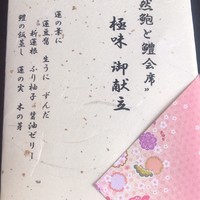 然鮑と鱧会席”
極味 御献立
蓮の葉に
蓮豆腐 生うに ずんだ
新蓮根 ふり柚子 醤油ゼリー
鱧の飯蒸し 蓮の実 木の芽